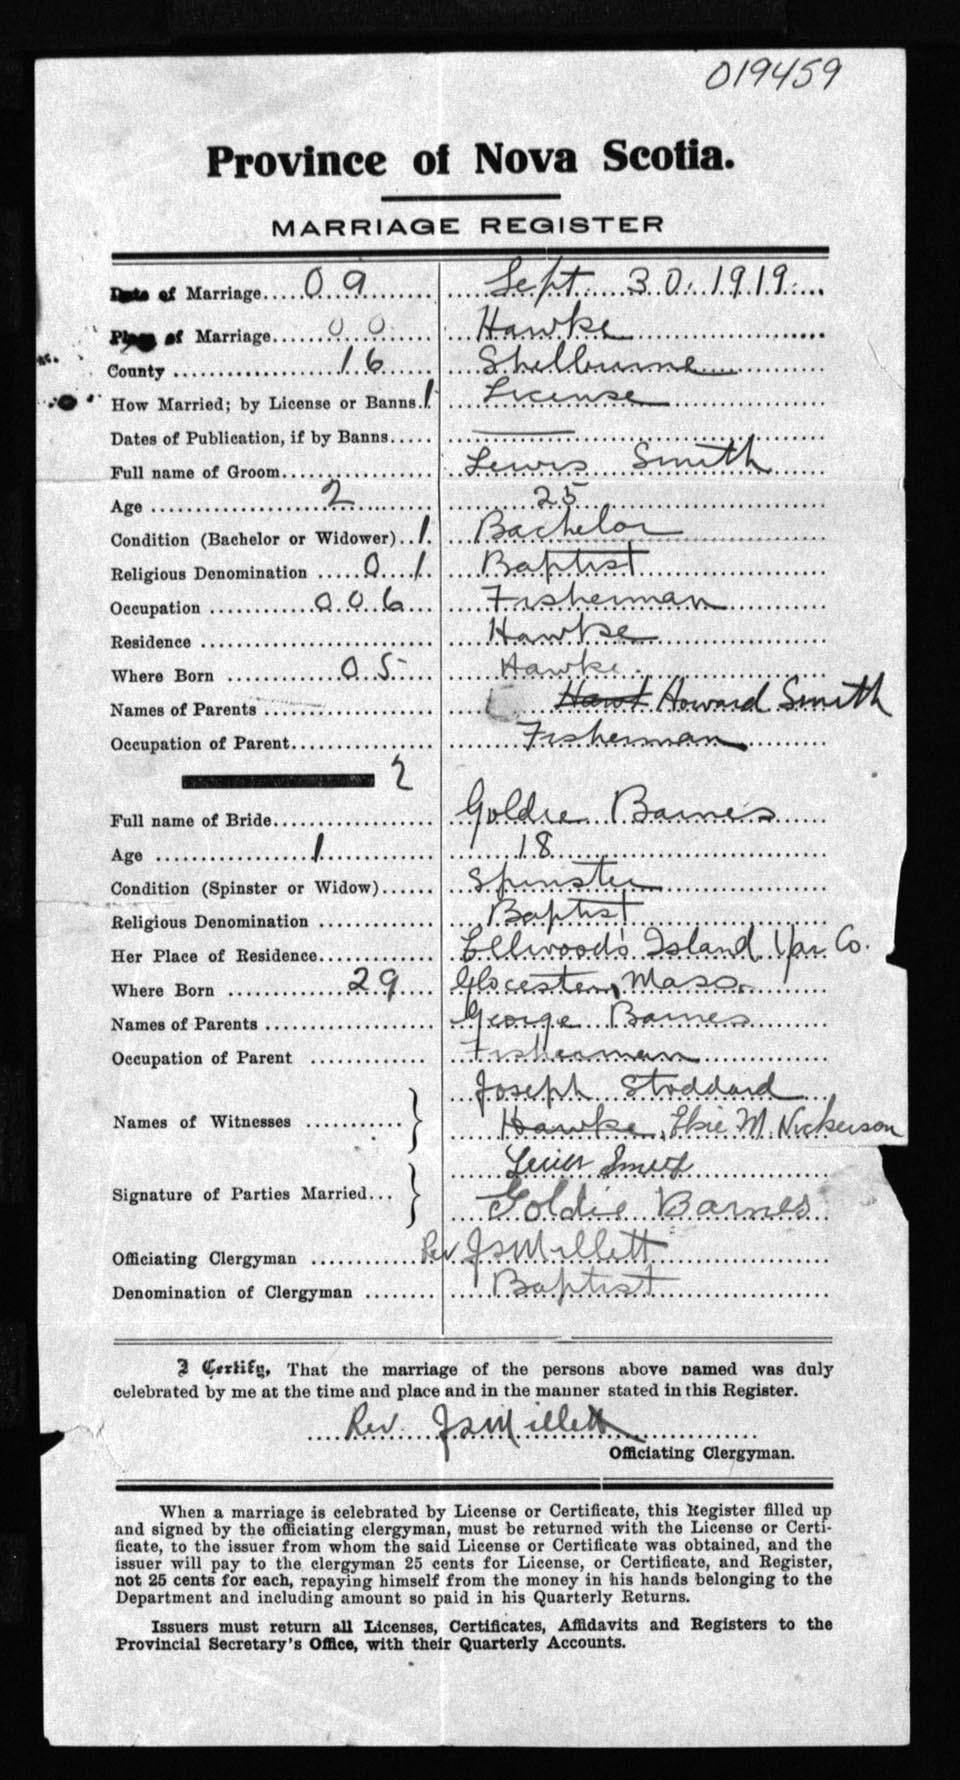 019459
Province of Nova Scotia.
MARRIAGE REGISTER
Date of Marriage..... 09 Sept. 30. 1919.
Place of Marriage..... 00 Hawke
County ..... 16 Shelburne
How Married; by License or Banns. 1 License
Dates of Publication, if by Banns..... ———
Full name of Groom..... Lewis Smith
Age ..... 2 25
Condition (Bachelor or Widower).. 1. Bachelor
Religious Denomination ..... 01. Baptist
Occupation ..... 006 Fisherman
Residence ..... Hawke
Where Born ..... 05 Hawke.
Names of Parents ..... Howard Smith
Occupation of Parent..... Fisherman
2
Full name of Bride..... Goldie Barnes
Age ..... 1 18
Condition (Spinster or Widow)..... Spinster
Religious Denomination ..... Baptist
Her Place of Residence..... Ellwoods Island Yar Co.
Where Born ..... 29 Glocester, Mass.
Names of Parents ..... George Barnes
Occupation of Parent ..... Fisherman
Joseph Stoddard
Names of Witnesses ..... Hawke, Elsie M. Nickerson
Lewis Smith
Signature of Parties Married... Goldie Barnes
Officiating Clergyman ..... Rev JSMillett
Denomination of Clergyman ..... Baptist
I Certify, That the marriage of the persons above named was duly
celebrated by me at the time and place and in the manner stated in this Register.
Rev. JSMillett
Officiating Clergyman.
When a marriage is celebrated by License or Certificate, this Register filled up
and signed by the officiating clergyman, must be returned with the License or Certi-
ficate, to the issuer from whom the said License or Certificate was obtained, and the
issuer will pay to the clergyman 25 cents for License, or Certificate, and Register,
not 25 cents for each, repaying himself from the money in his hands belonging to the
Department and including amount so paid in his Quarterly Returns.
Issuers must return all Licenses, Certificates, Affidavits and Registers to the
Provincial Secretary's Office, with their Quarterly Accounts.